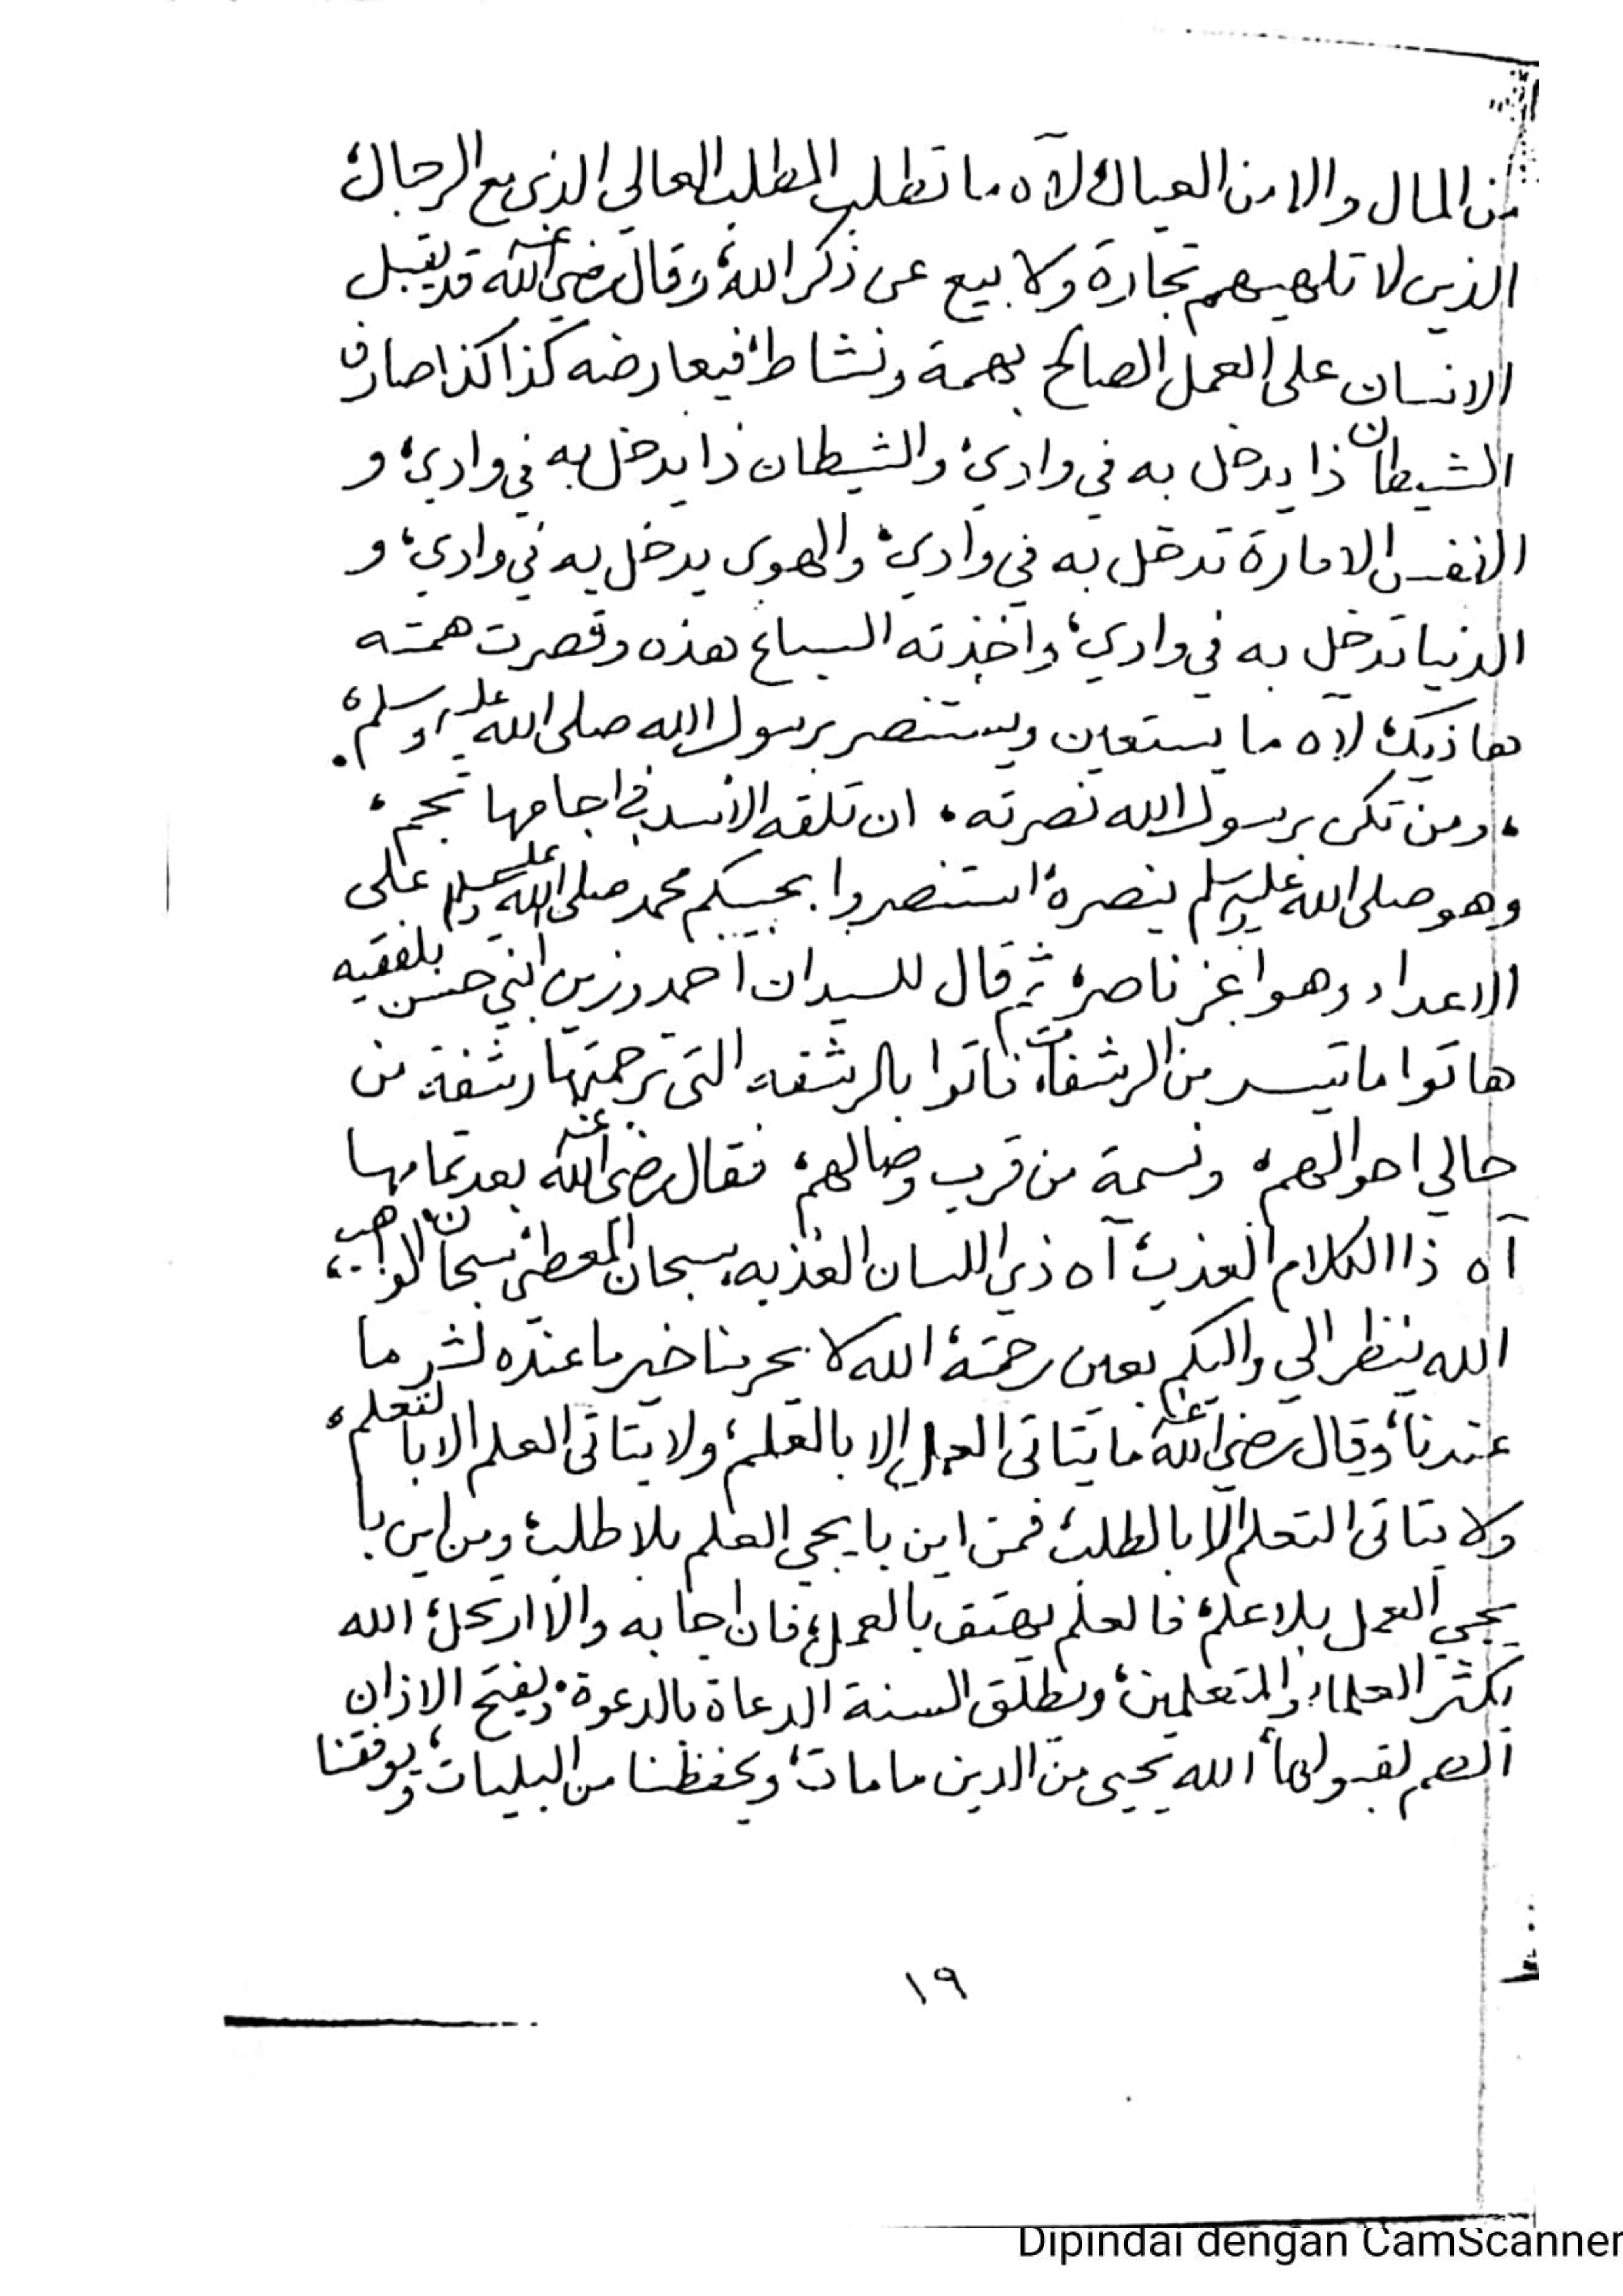 من المال والا من العيال لاه ما تطلب المطلب العالي الذي مع الرجال،
الذين لا تلهيهم تجارة ولا بيع عن ذكر الله، وقال رضي الله عنه قد يقبل
الانسان على العمل الصالح بهمة ونشاط، فيعارضه كذا كذا صارف
الشيطان ذا يدخل به في وادي، والشيطان ذا يدخل به في وادي، و
النفس الامارة تدخل به في وادي، والهوى يدخل به في وادي، و
الدنيا تدخل به في وادي، واخذته السباع هذه وقصرت همته
هاذيك، لاه ما يستعين ويستنصر برسول الله صلى الله عليه وسلم،
، ومن تكن برسول الله نصرته ، ان تلقه الاسد في اجامها تجم ،
وهو صلى الله عليه وسلم ينصره، استنصروا بحبيبكم محمد صلى الله عليه وسلم على
الاعداء وهو اعز ناصر، ثم قال للسيدان احمد وزين ابني حسن بلفقيه
هاتوا ما تيسر من الرشفات، فاتوا بالرشفه التي ترجمتها رشفة من
حالي احوالهم، ونسمة من قرب وصالهم، فقال رضي الله عنه بعد تمامها
آه ذا الكلام العذب، آه ذي اللسان العذبه، سبحان المعطي، سبحان الواهب،
الله ينظر الي واليكم بعين رحمته، الله لا يحرمنا خير ما عنده لشر ما
عندنا، وقال رضي الله عنه ما يتاتى العمل إلا بالعلم، ولا يتاتى العلم الا بالتعلم،
ولا يتاتى التعلم الا بالطلب، فمن اين با يجي العلم بلا طلب، ومن اين با
يجي العمل بلا علم، فالعلم يهتف بالعمل، فان اجابه والا ارتحل، الله
يكثر العلماء والمتعلمين، ويطلق السنة الدعاة بالدعوة، ويفتح الاذان
الصم لقبولها، الله يحيي من الدين ما مات، ويحفظنا من البليات، ويوفقنا
١٩
Dipindai dengan CamScanner